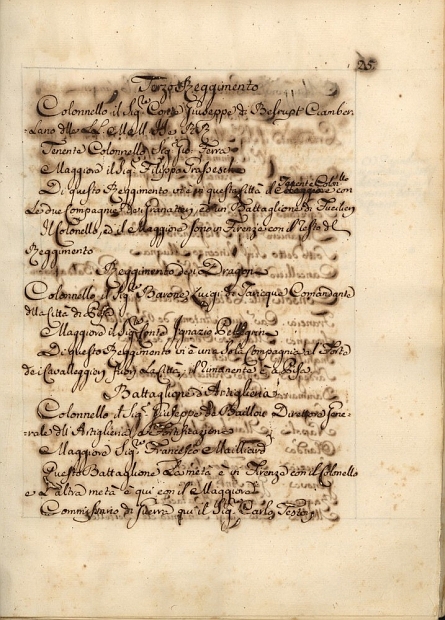 25
Terzo Reggimento
Colonnello il Sig.re Conte Giuseppe de Ciamber=
=lano delle LL. MM.
Tenente Colonnello Sig.re
Maggiore il Sig.re Filippo
Di questo Reggimento vi è in questa Città il Tenente Colon.llo con
Le due Compagnie de Granatieri, ed un Battaglione di Fucilieri
Il Colonello, ed il Maggiore sono in Firenze con il resto del
Reggimento
Reggimento de Dragoni
Colonnello il Sig.re Barone Luigi de Comandante
della Città di Pisa
Maggiore il Sig.re Conte Ignazio Pellegrini
Di questo Reggimento vi è una Sola Compagnia al Forte
de i Cavalleggieri fuori La Città, il rimanente è a Pisa
Battaglione d'Artiglieria
Colonnello il Sig.re Giuseppe de Baillou Direttore Gene=
=rale dell'Artiglieria, e Fortificazioni
Maggiore Sig.re Francesco Mailliard
Questo Battaglione La metà è in Firenze con il Colonello
e L'altra metà è qui con il Maggiore
Commissario di Guerra qui il Sig.re Carlo Testori